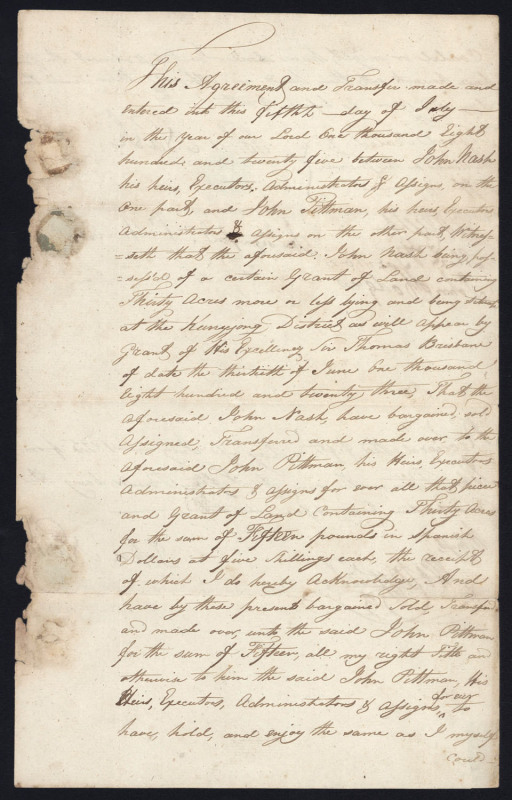 This Agreiment and Transfer made and
entered into this fifth day of July
in the year of our Lord One thousand Eight
hundred and twenty five between John Nash
his heirs, Executors, Administrators & Assigns, on the
One part, and John Pittman, his heirs Executors
Administrators & assigns on the other part, Witnes-
=seth that the aforesaid John Nash being pos-
=sess'd of a certain Grant of Land containing
Thirty Acres more or less lying and being
at the District as will appear by
Grant of His Excellency Sir Thomas Brisbane
of date the thirtieth of June One thousand
Eight hundred and twenty three, That the
aforesaid John Nash, have bargained, sold
Assigned, Transferred and made over, to the
aforesaid John Pittman, his Heirs, Executors
Administrators & assigns for ever all that piece
and Grant of Land Containing Thirty Acres
for the sum of Fifteen pounds in Spanish
Dollars at five shillings each, the receipt
of which I do hereby Acknowledge, And
have by these present bargained Sold, Transfer'd
and made over, unto the said John Pittman
for the sum of Fifteen, all my right title and
otherwise to him the said John Pittman, His
Heirs, Executors, Administrators & assigns, for ever to
have, hold, and enjoy the same as I myself
could